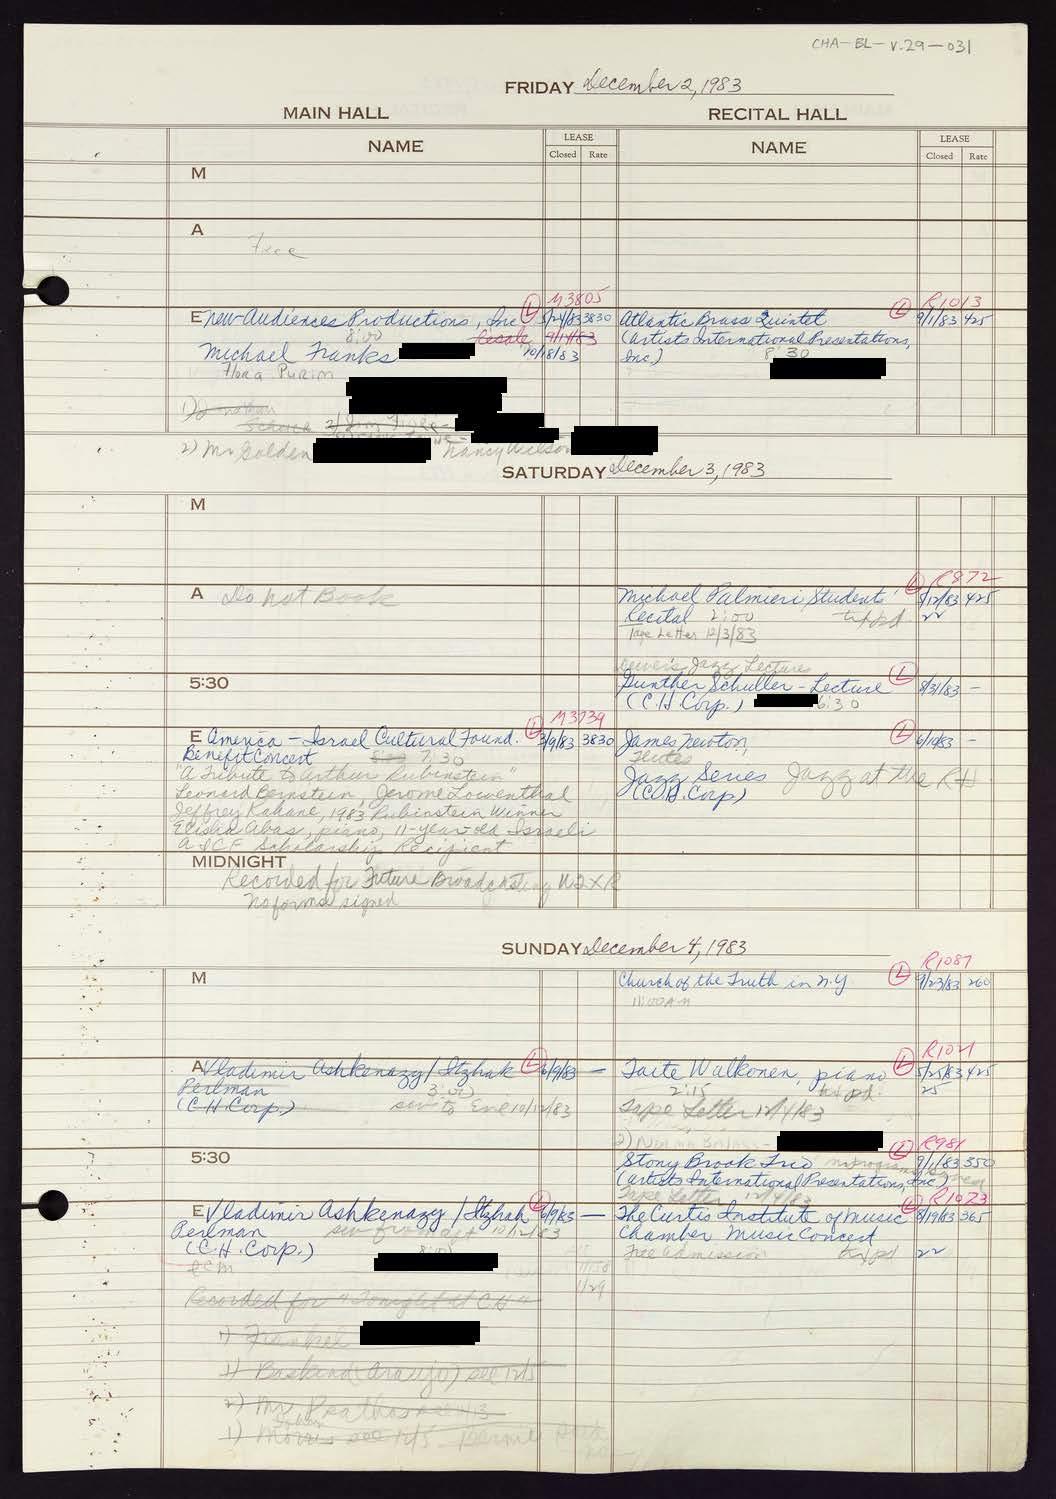 CHA-BL-V.29-031
FRIDAY December 2, 1983
MAIN HALL RECITAL HALL
NAME LEASE Closed Rate NAME LEASE Closed Rate
M
A
Free
M3805 R1013
E New Audiences Productions, Inc. L 5/24/83 3830 Atlantic Brass Quintet L 9/1/83 425
8:00 Resale 9/14/83 (Artists International Presentations,
Michael Franks 10/18/83 Inc.) 8:30
Flora Purim
1) Jonathan
Schuck 2) Jim
2) Mr Golden Nancy Wilson
SATURDAY December 3, 1983
M
R872
A Do not Book Michael Palmieri Students' L 5/12/83 425
Recital 2:00 tx pd 22
Tape Letter 12/3/83
Jazz Lectures
5:30 Gunther Schuller - Lecture L 8/31/83 -
(C.H. Corp.) 6:30
M3739
E America-Israel Cultural Found. L 3/9/83 3830 James Newton, L 6/10/83 -
Benefit Concert 8:00 7:30 flutes
"A Tribute to Arthur Rubinstein" Jazz Series Jazz at the RH
Leonard Bernstein, Jerome Lowenthal (C.H. Corp)
Jeffrey Kahane, 1983 Rubinstein Winner
Elisha Abas, piano, 11-year-old Israeli
AICF Scholarship Recipient
MIDNIGHT
Recorded for Future Broadcasting WQXR
No forms signed
SUNDAY December 4, 1983
R1087
M Church of the Truth in N.Y. L 9/23/83 260
11:00 AM
R1021
A Vladimir Ashkenazy / Itzhak L 6/9/83 - Taite Walkonen, piano L 5/25/83 425
Perlman 3:00 2:15 tx pd. 25
(C.H. Corp.) sw to Eve 10/12/83 Tape Letter 12/4/83
2) Norma
R981
5:30 Stony Brook Trio L 9/1/83 350
(Artists International Presentations, Inc)
Tape Letter 12/4/83 R1023
E Vladimir Ashkenazy / Itzhak L 6/9/83 - The Curtis Institute of Music L 8/19/83 365
Perlman sw from Aft 10/12/83 Chamber Music Concert
(C.H. Corp.) 8:00 Free Admission tx pd 22
ICM
1/29
Recorded for "Tonight at C.H."
1) Frankel
1) Baskind (Araujo) see 12/5
2) Mr.
1) Morris see 12/5